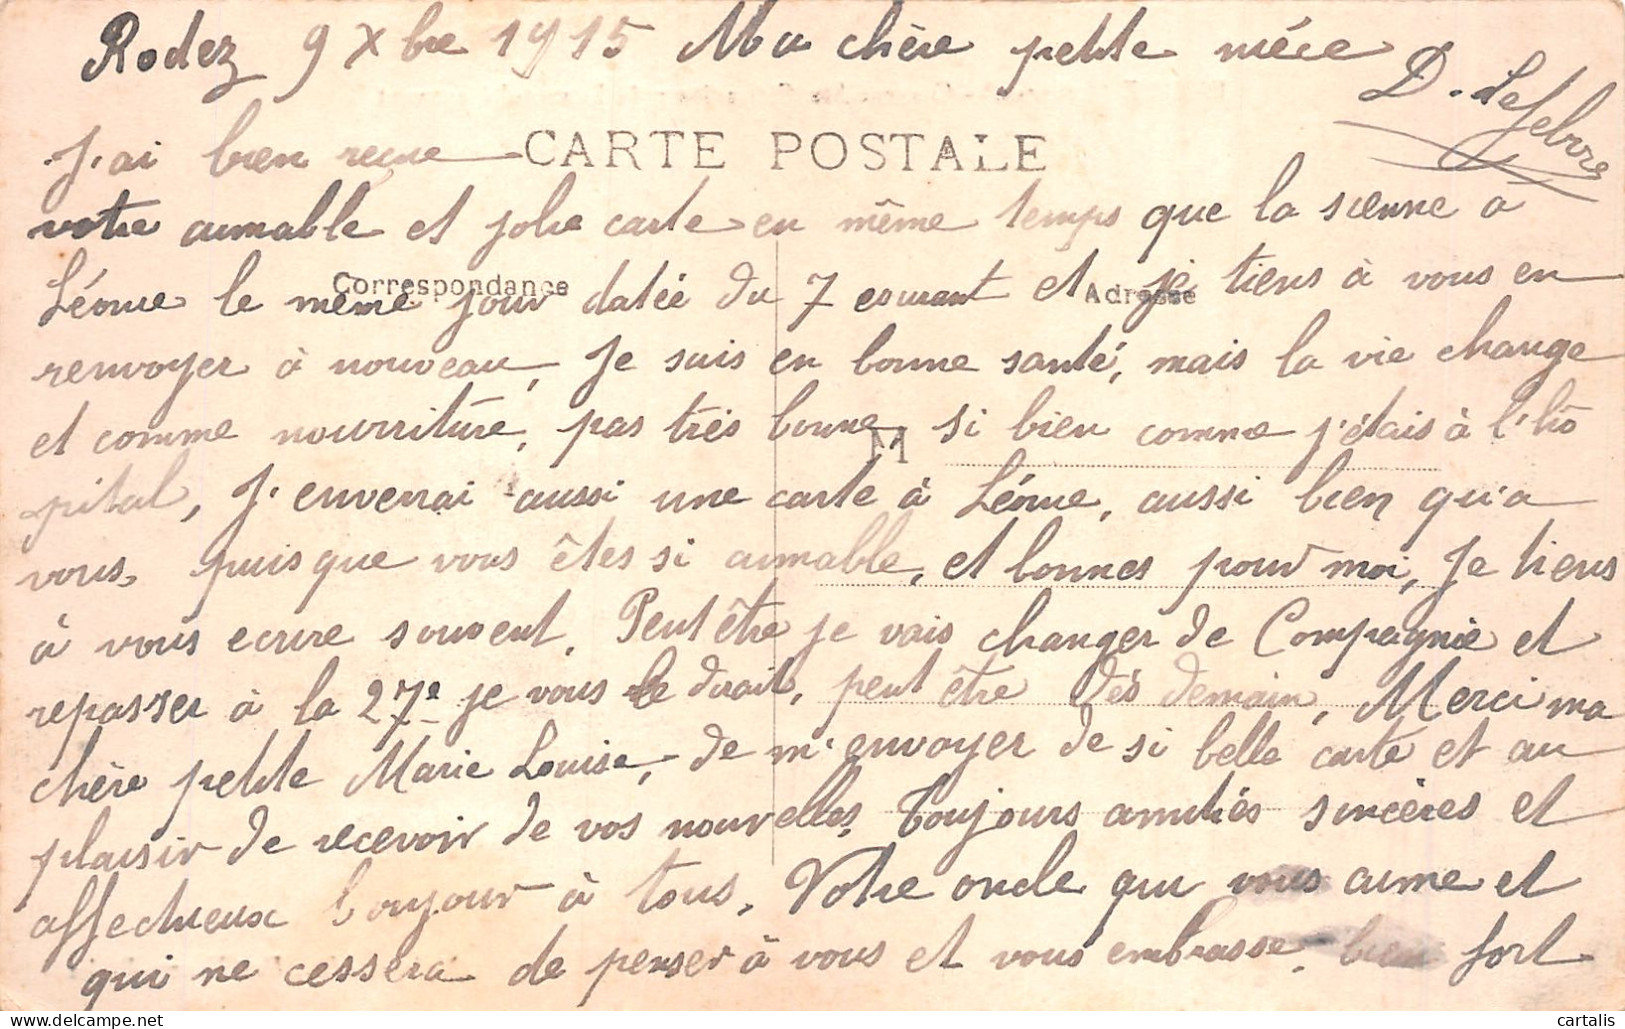 Rodez 9 Xbre 1915 Ma chère petite nièce
D. Lefebvre
J'ai bien reçue
CARTE POSTALE
votre aimable et jolie carte en même temps que la sienne à
Correspondance
Adresse
Léonie le même jour datée du 7 courant et je tiens à vous en
renvoyer à nouveau, Je suis en bonne santé, mais la vie change
et comme nourriture, pas très bonne si bien comme j'étais à l'hô
M
pital, J'enverrai aussi une carte à Léonie, aussi bien qu'a
vous, puisque vous êtes si aimable, et bonnes pour moi, Je tiens
à vous ecrire souvent. Peut être je vais changer de Compagnie et
repasser à la 27e je vous le dirait, peut être dès demain, Merci ma
chère petite Marie Louise, de m'envoyer de si belle carte et au
plaisir de recevoir de vos nouvelles, Toujours amitiés sincères et
affectueux bonjour à tous, Votre oncle qui vous aime et
qui ne cessera de penser à vous et vous embrasse, bien fort
cartalis